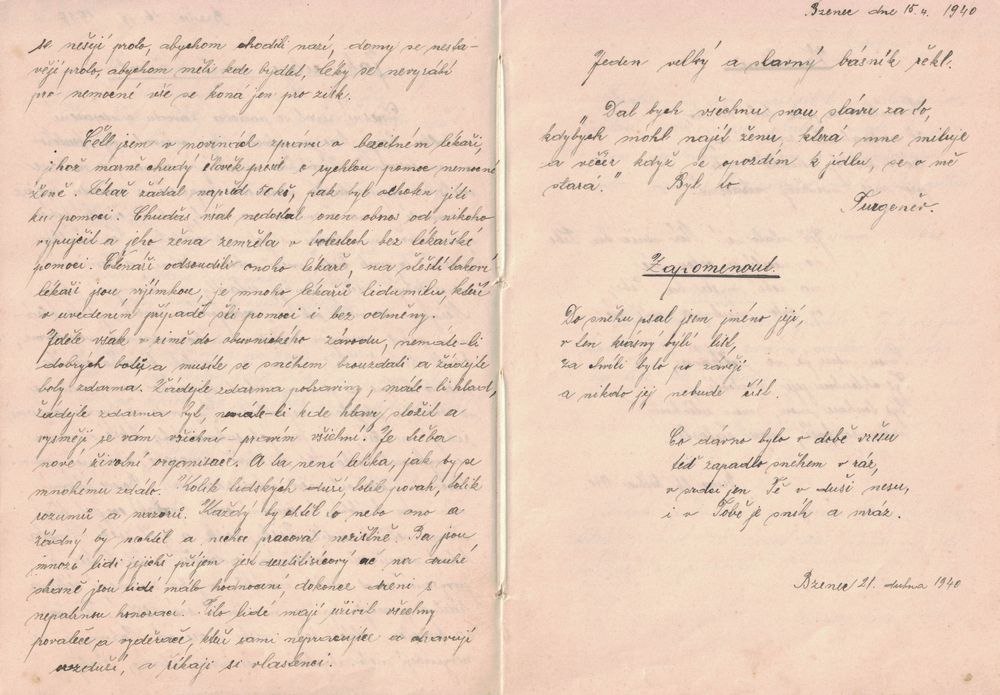 se nešijí proto, abychom chodili nazí, domy se nesta-
vějí proto, abychom měli kde bydlet, léky se nevyrábí
pro nemocné vše se koná jen pro zisk.
Četl jsem v novinách zprávu o bezcitném lékaři,
jehož marně chudý člověk prosil o rychlou pomoc nemocné
ženě. Lékař žádal napřed 50 kč, pak byl ochoten jíti
ku pomoci. Chudas však nedostal onen obnos od nikoho
vypujčit a jeho žena zemřela v bolestech bez lékařské
pomoci. Čtenáři odsoudili onoho lékaře, na štěstí takoví
lékaři jsou vyjímkou, je mnoho lékařů lidumilu, kteří
v uvedeném případě šli pomoci i bez odměny.
Jděte však v zimě do obuvnického závodu, nemáte-li
dobrých botů a musíte se sněhem brouzdati a žádejte
boty zdarma. Žádejte zdarma potraviny, máte-li hlad,
žádejte zdarma byt, nemáte-li kde hlavu složit a
vysmějí se vám všichni - pravím všichni! Je třeba
nové životní organisace. A ta není lehka, jak by se
mnohému zdálo. Kolik lidských duší, tolik povah, tolik
rozumů a názorů. Každý by chtěl to nebo ono a
žádný by nechtěl a nechce pracovat nezištně. Ba jsou
mnozí lidi jejichž příjem jest desetitisícový ač na druhé
straně jsou lidé málo hodnocení, dokonce dření s
nepatrnou honorací. Tito lidé mají uživit všechny
povaleče a vyděrače, kteří sami nepracujíce a otravují
ovzduší, a říkají si vlastenci.
Bzenec dne 15. 4. 1940
Jeden velký a slavný básník řekl.
"Dal bych všechnu svou slávu za to,
kdybych mohl najít ženu, která mne miluje
a večer když se opozdím k jídlu, se o mě
stará." Byl to
Turgeněv.
Zapomenout.
Do sněhu psal jsem jméno její,
v ten krásny bílý list,
za chvíli bylo po závěji
a nikdo jej nebude číst.
Co dávno bylo v době vřesu
teď zapadlo sněhem v ráz,
v srdci jen Tě v duši nesu,
i v Tobě je sníh a mráz.
Bzenec 21. dubna 1940